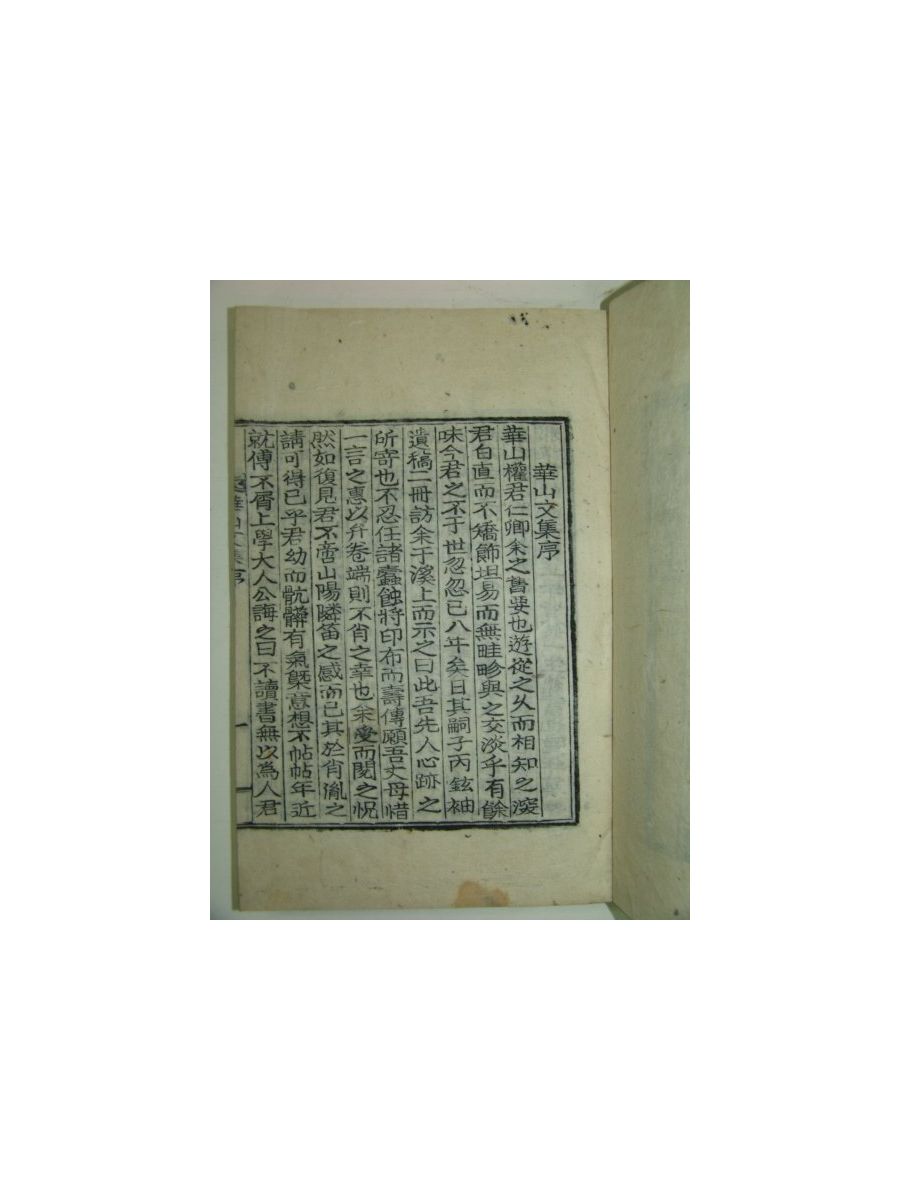 華山文集序
華山權君仁卿余之舊要也遊從之久而相知之深
君白直而不矯飾坦易而無畦畛與之交淡乎有餘
味今君之不于世忽忽已八年矣日其嗣子丙鉉袖
遺稿二冊訪余于溪上而示之曰此吾先人心跡之
所寄也不忍任諸蠹蝕將印布而壽傳願吾丈毋惜
一言之惠以弁卷端則不肖之幸也余受而閱之怳
然如復見君不啻山陽隣笛之感而已其於肖胤之
請可得已乎君幼而骯髒有氣槩意想不帖帖年近
就傅不屑上學大人公誨之曰不讀書無以爲人君
華山文集序 一